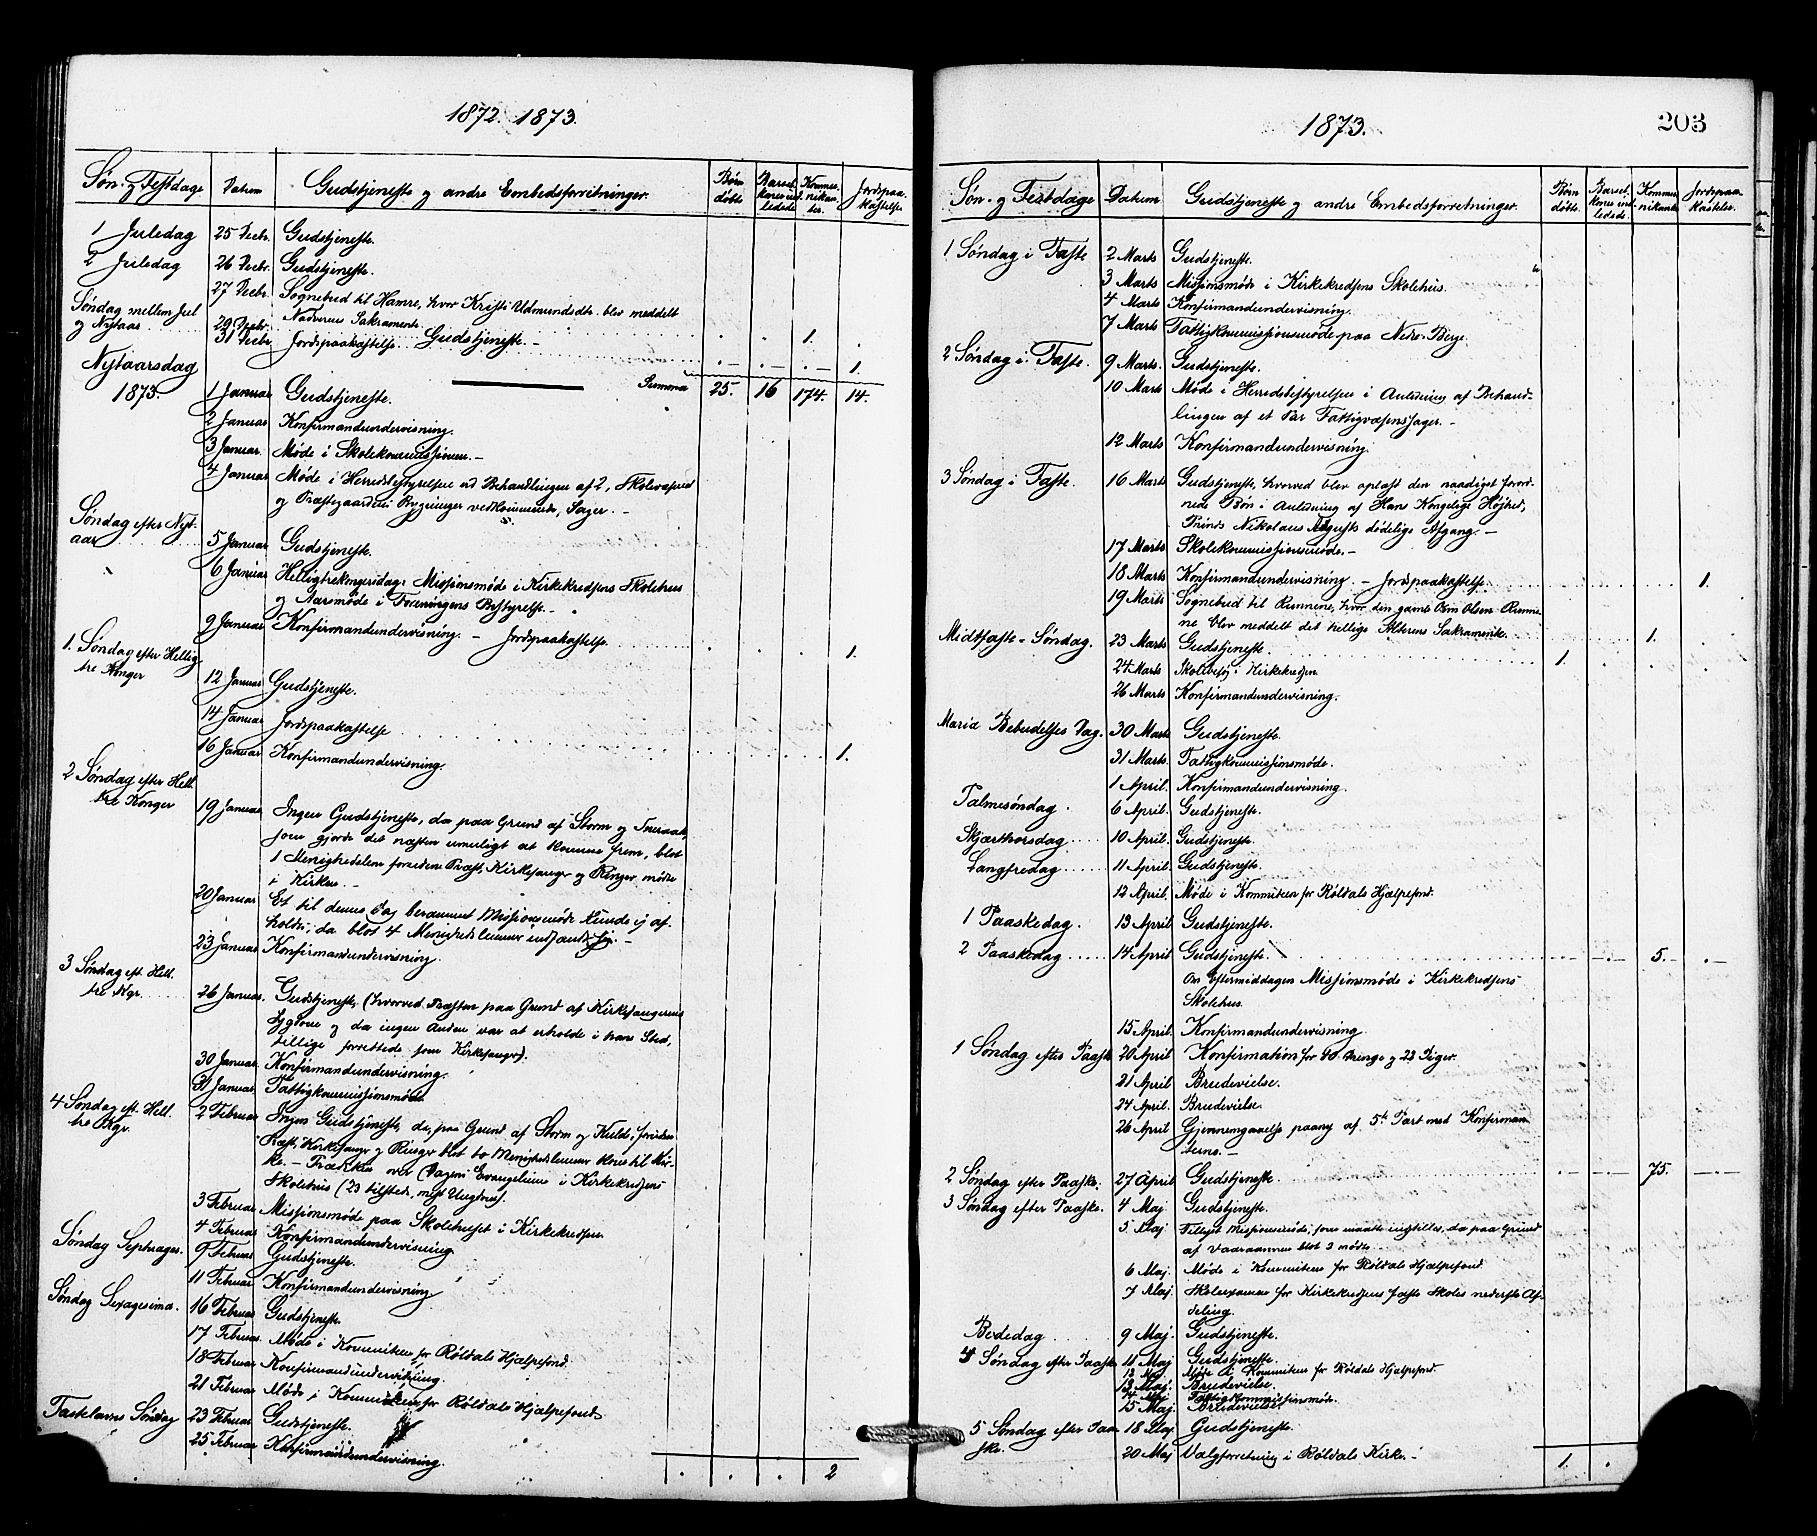 1872. 1873.
Søn- og Festdage Datum Gudstjeneste og andre Embedsforretninger. Børn døbte Barselkoner indledede Kommunikanter. Jordspaakastelse
1 Juledag 25 Decbr. Gudstjeneste.
2 Juledag 26 Decbr. Gudstjeneste.
27 Decbr. Sognebud til Hamre, hvor Kristi Udmundsdtr. blev meddelt
Nadverens Sakramente. 1.
Søndag mellem Jul
og Nytaar 29 Decbr. Gudstjeneste. –
31 Decbr. Jordspaakastelse 1.
Summa 25. 16 174. 14.
Nytaarsdag
1873. 1 Januar Gudstjeneste.
2 Januar Konfirmandundervisning.
3 Januar. Møde i Skolekommissionen. –
4 Januar Møde i Herredsbestyrelsen ved Behandlingen af 2, Skolevæsenet
og Præstegaardens Bygninger vedkommende, Sager. –
Søndag efter Nyt-
aar 5 Januar Gudstjeneste.
6 Januar Helligtrekongersdag: Missionsmøde i Kirkekredsens Skolehus
og Aarsmøde i Foreningens Bestyrelse. –
9 Januar Konfirmandundervisning. – Jordspaakastelse 1.
1. Søndag efter Hellig
tre Konger 12 Januar Gudstjeneste.
14 Januar Jordspaakastelse 1.
16 Januar Konfirmandundervisning.
2 Søndag efter Hell.
tre Konger 19 Januar Ingen Gudstjeneste, da paa Grund af Storm og Snevaat,
som gjorde det næsten umuligt at komme frem, blot
1 Menighedslem foruden Præst, Kirkesanger og Ringer mødte
i Kirken. –
20 Januar Et til denne Dag berammet Missionsmøde kunde ej af-
holdes, da blot 4 Menighedslemmer indfandt sig. –
23 Januar Konfirmandundervisning.
3 Søndag eft. Hell.
tre Kgr. 26 Januar. Gudstjeneste, (hvorved Præsten paa Grund af Kirkesangerens
Sygdom og da ingen Anden var at erholde i hans Sted,
tillige forrettede som Kirkesanger).
30 Januar Konfirmandundervisning.
31 Januar Fattigkommissionsmøde
4 Søndag eft. Hell.
tre Kgr. 2 Februar Ingen Gudstjeneste, da, paa Grund af Storm og Kuld, foruden
Præst, Kirkesanger og Ringer blot to Menighedslemmer kom til Kir-
ke. – over Dagens Evangelium i Kirkekredsens
Skolehus (23 tilstede, mest Ungdom).
3 Februar Missionsmøde paa Skolehuset i Kirkekredsen.
4 Februar Konfirmandundervisning
Søndag Septuages. 9 Februar Gudstjeneste.
11 Februar Konfirmandundervisning
Søndag Sexagesima. 16 Februar Gudstjeneste.
17 Februar Møde i Kommiteen for Røldals Hjælpefond.
18 Februar Konfirmandundervisning.
21 Februar Møde i Kommiteen for Røldals Hjælpefond.
Fastelavns Søndag 23 Februar Gudstjeneste.
25 Februar Konfirmandundervisning.
2
1873. 203
Søn- og Festdage Datum Gudstjeneste og andre Embedsforretninger. Børn døbte. Barselkoner indledede Kommunikanter Jordspaakastelse.
1 Søndag i Faste 2 Marts Gudstjeneste.
3 Marts Missionsmøde i Kirkekredsens Skolehus.
4 Marts Konfirmandundervisning.
7 Marts Fattigkommissionsmøde paa Nedre Berge.
2 Søndag i Faste. 9 Marts. Gudstjeneste.
10 Marts Møde i Herredsbestyrelsen i Anledning af Behand-
lingen af et Par Fattigvæsenssager. –
12 Marts Konfirmandundervisning.
3 Søndag i Faste. 16 Marts Gudstjeneste, hvorved blev oplæst den naadigst forord-
nede Bøn i Anledning af Hans Kongelige Højhed,
Prinds Nikolaus Augusts dødelige Afgang. –
17 Marts Skolekommissionsmøde. –
18 Marts Konfirmandundervisning. – Jordspaakastelse 1.
19 Marts Sognebud til Runnene, hvor den gamle Olsen Runne-
ne blev meddelt det hellige Alterens Sakramente. 1.
Midtfaste-Søndag. 23 Marts Gudstjeneste 1.
24 Marts Skolebesøg i Kirkekredsen.
26 Marts Konfirmandundervisning.
Mariæ Bebudelses Dag. 30 Marts Gudstjeneste.
31 Marts. Fattigkommissionsmøde.
1 April. Konfirmandundervisning.
Palmesøndag. 6 April. Gudstjeneste.
Skjærthorsdag 10 April. Gudstjeneste.
Langfredag 11 April. Gudstjeneste.
12 April. Møde i Kommiteen for Røldals Hjælpefond.
1 Paaskedag. 13 April Gudstjeneste.
2 Paaskedag 14 April Gudstjeneste. 5.
Om Eftermiddagen Missionsmøde i Kirkekredsens
Skolehus.
15 April. Konfirmandundervisning.
1 Søndag efter Paaske 20 April Konfirmation for 10 Drenge og 23 Piger.
21 April Brudevielse.
24 April. Brudevielse.
26 April Gjennemgaaelse paany af 5te Part med Konfirman-
terne. –
2 Søndag efter Paaske. 27 April Gudstjeneste. 75.
3 Søndag efter Paaske. 4 Maj Gudstjeneste.
5 Maj Missionsmøde, som maatte indstilles, da paa Grund
af Vaaraannen blot 3 mødte
6 Maj. Møde i Kommiteen for Røldals Hjælpefond.
7 Maj. Skoleexamen for Kirkekredsens faste Skoles nederste Af-
deling.
Bededag 9 Maj. Gudstjeneste.
4 Søndag efter Paaske 11 Maj Gudstjeneste.
12 Maj Møde i Kommiteen for Røldals Hjælpefond.
13 Maj. Brudevielse.
14 Maj Fattigkommissionsmøde.
15 Maj. Brudevielse.
5 Søndag efter Paa-
ske. 18 Maj. Gudstjeneste.
20 Maj Valgforretning i Røldals Kirke. –
1.